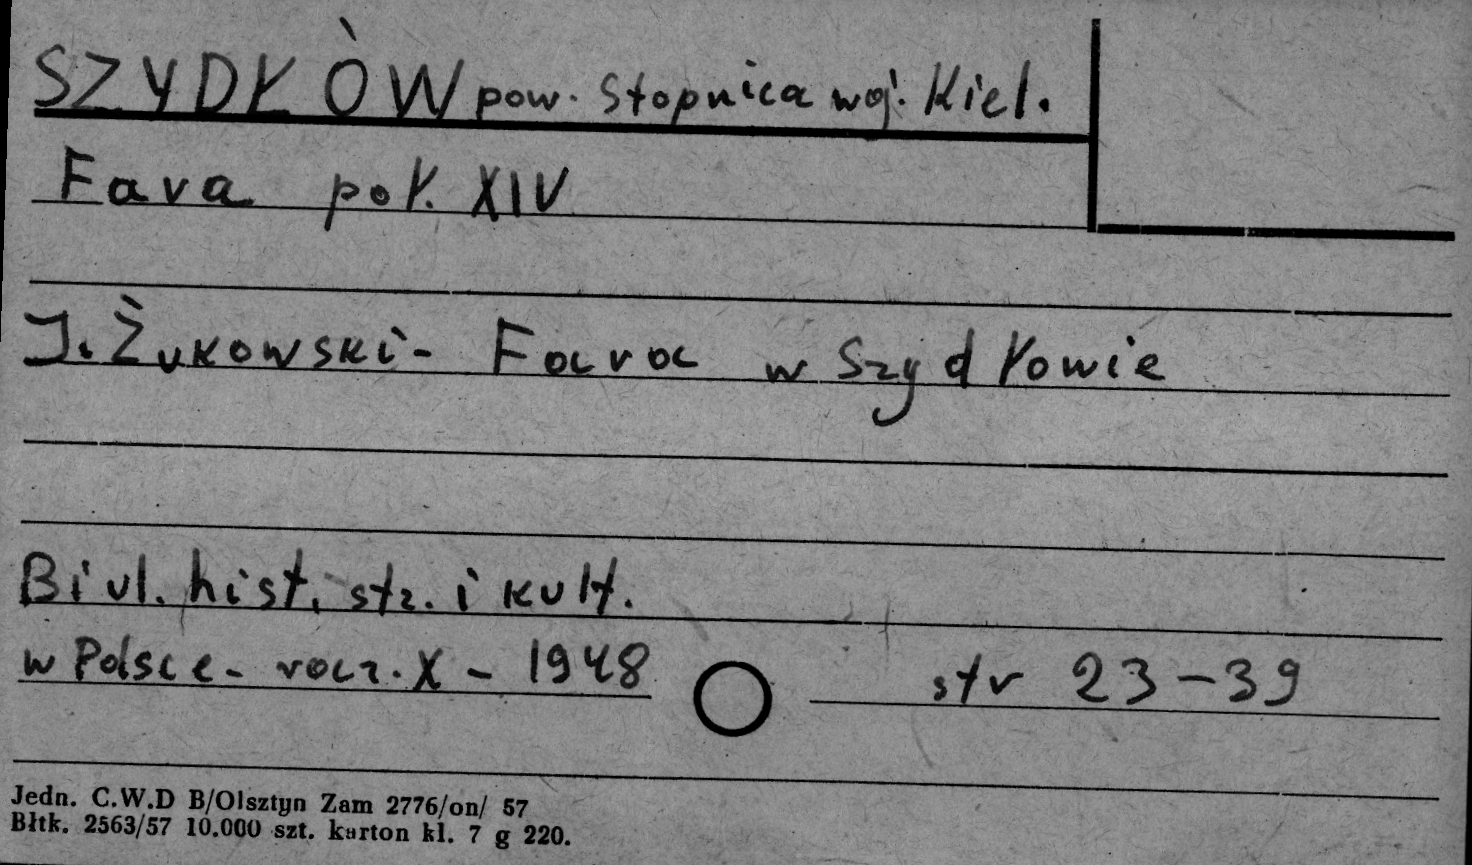 SZYDŁÓW pow. Stopnica woj. Kiel.
Fara poł. XIV
J. Żukowski - Fara w Szydłowie
Biul. hist. stz. i kult.
w Polsce - rocz. X - 1948 str 23-39
Jedn. C.W.D B/Olsztyn Zam 2776/on/ 57
Błtk. 2563/57 10.000 szt. karton kl. 7 g 220.